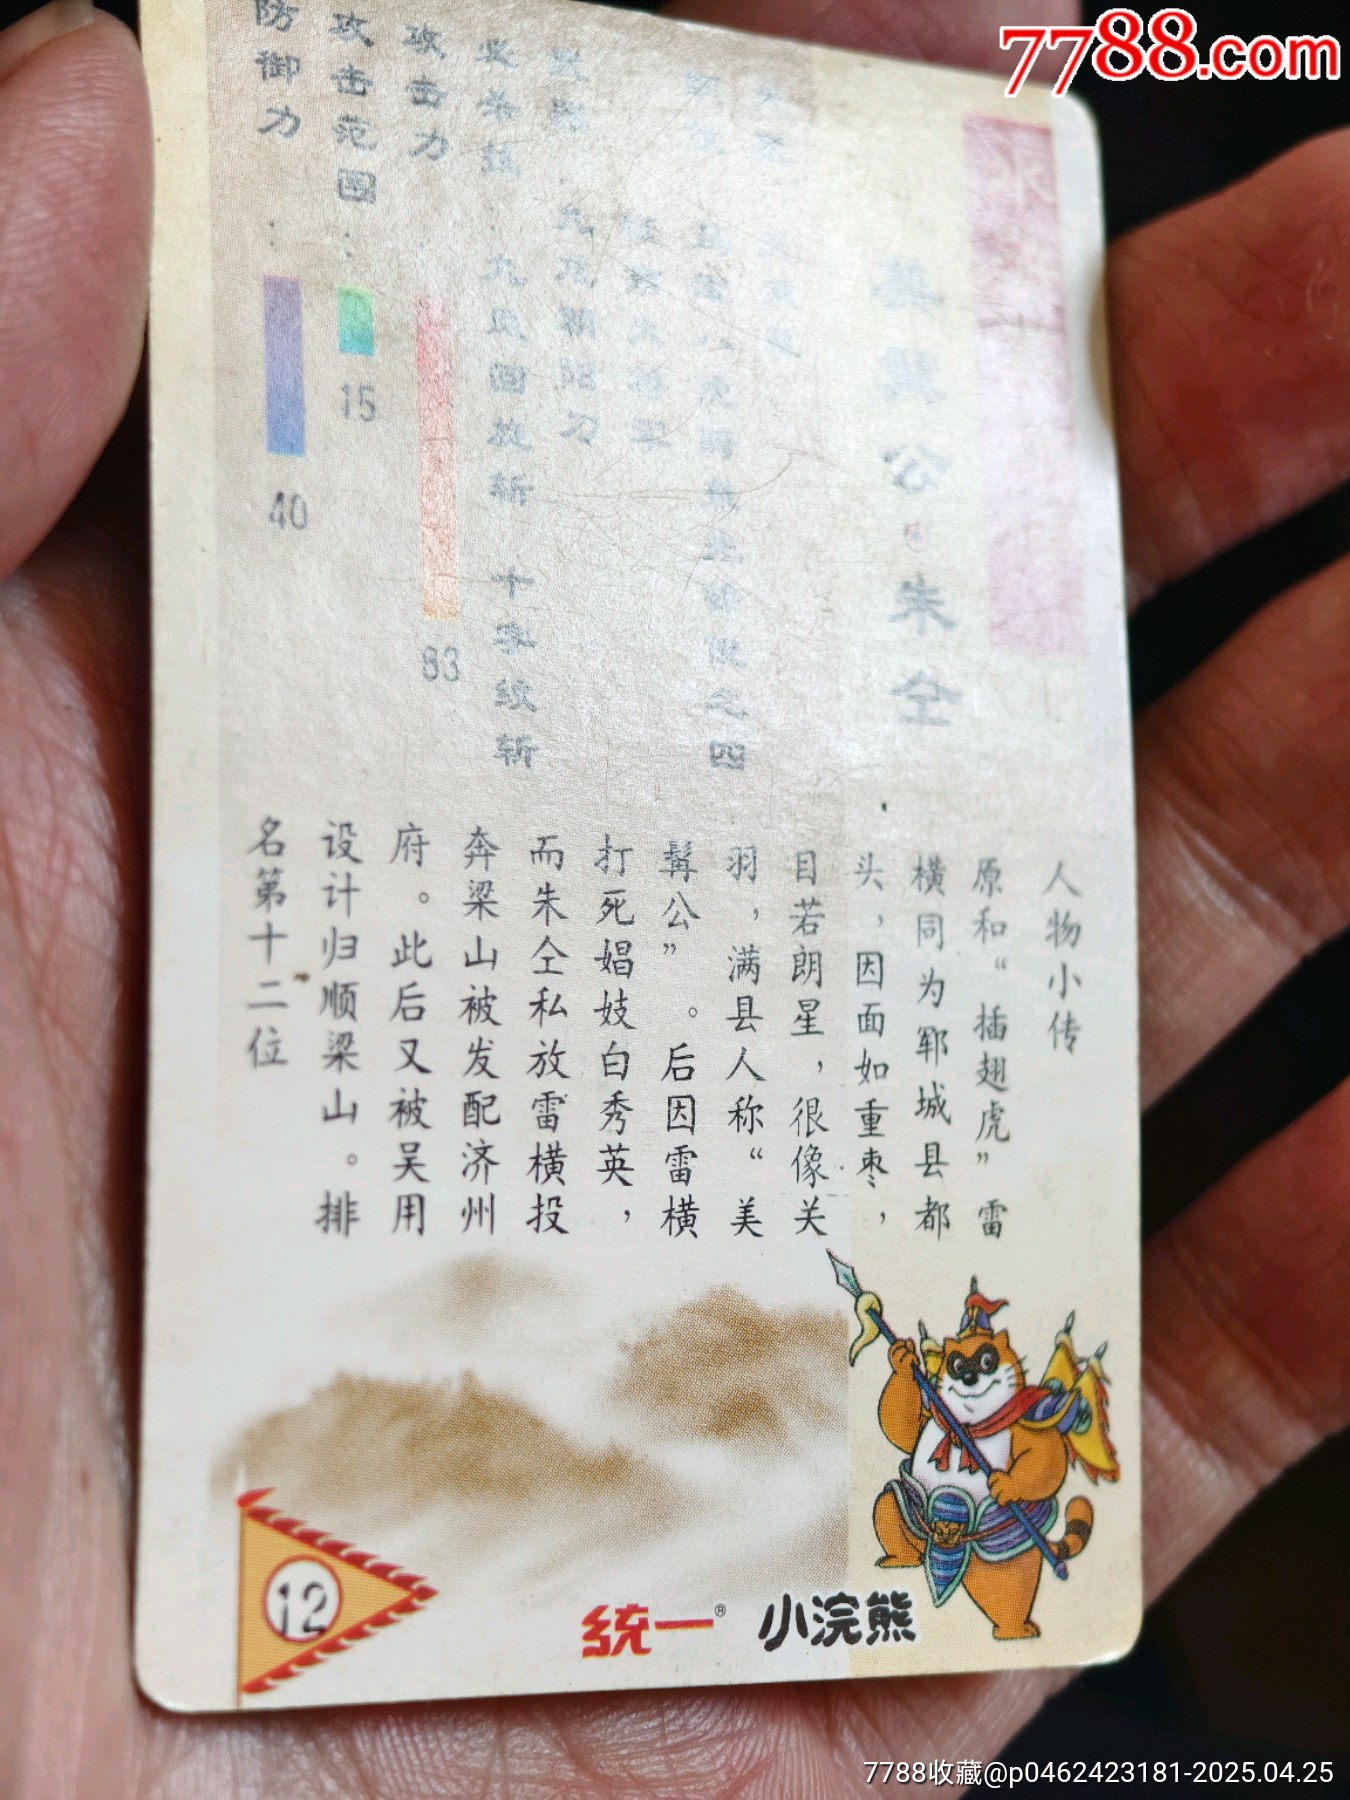 7788.com
水
美髯公·朱仝
之四
九
九龙朝阳刀
必杀技：九品回旋斩 十字纹斩
攻击力：83
攻击范围：15
防御力：40
人物小传
原和“插翅虎”雷
横同为郓城县都
头，因面如重枣，
目若朗星，很像关
羽，满县人称“美
髯公”。后因雷横
打死娼妓白秀英，
而朱仝私放雷横投
奔梁山被发配济州
府。此后又被吴用
设计归顺梁山。排
名第十二位
12
統一® 小浣熊
7788收藏@p0462423181-2025.04.25